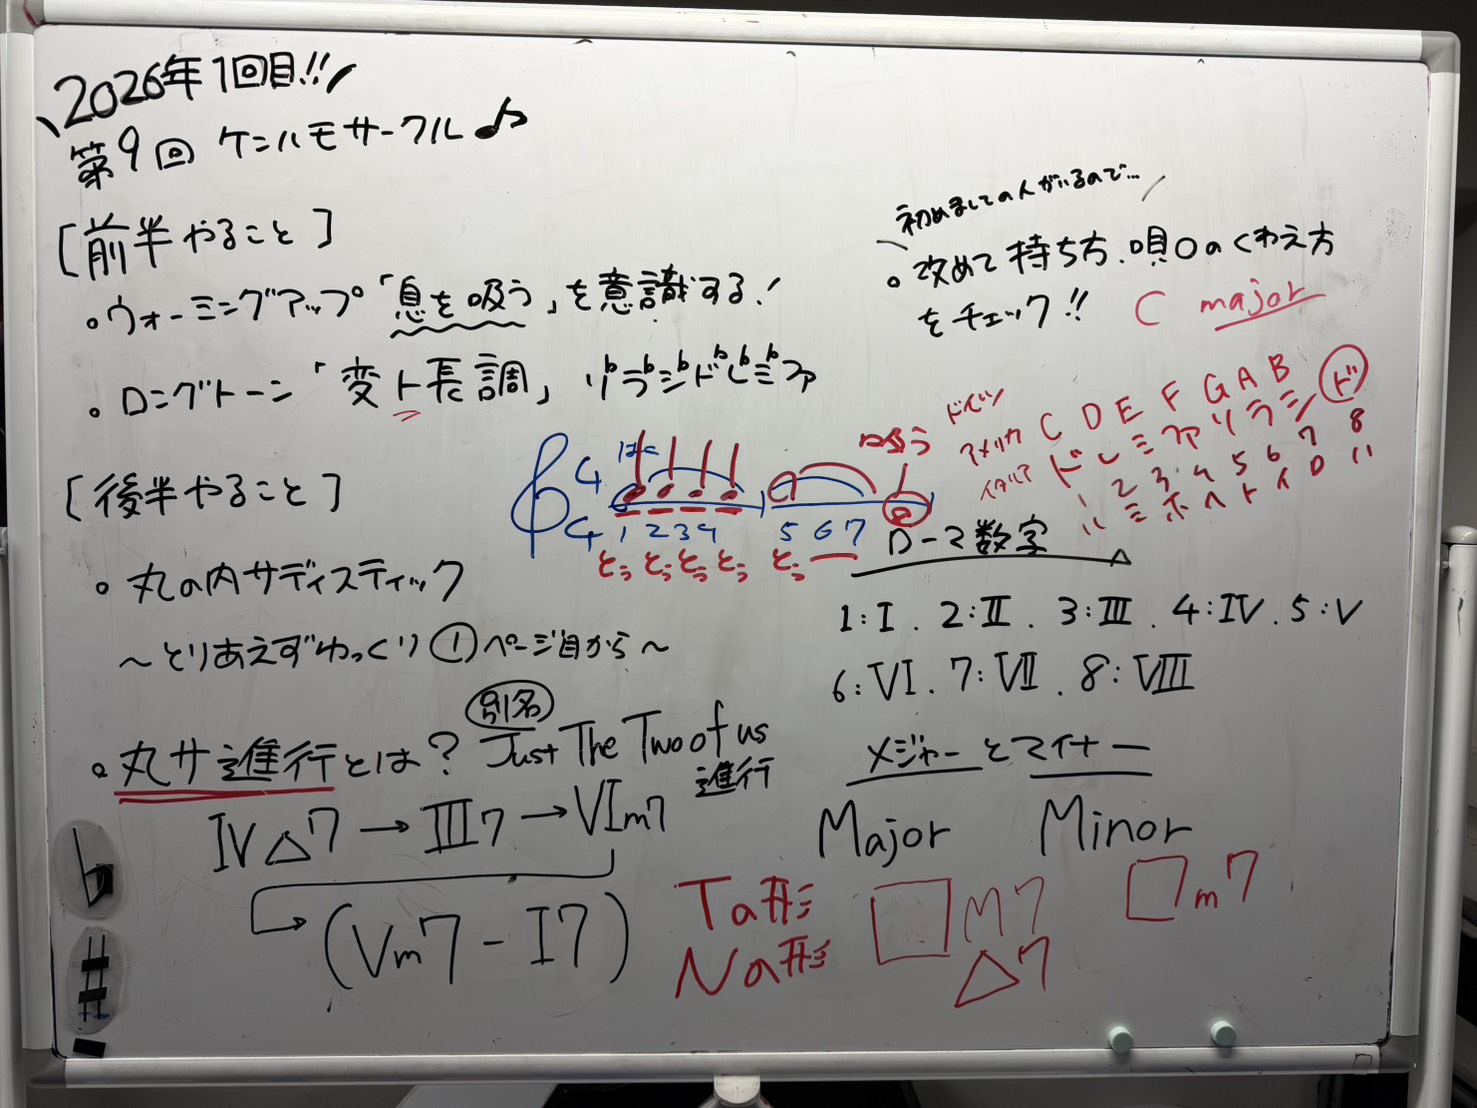 2026年1回目!!
第9回 ケンハモサークル♪
[前半やること]
。ウォーミングアップ「息を吸う」を意識する!
。ロングトーン「変ト長調」 ソ♭ラ♭シ♭ド♭レ♭ミ♭ファ
初めましての人がいるので…
。改めて持ち方、唄口のくわえ方
をチェック!!
C major
ドイツ
アメリカ C D E F G A B
イタリア ド レ ミ ファ ソ ラ シ ド
1 2 3 4 5 6 7 8
ハ ニ ホ ヘ ト イ ロ ハ
吸う
4
4
1 2 3 4 5 6 7
とぅ とぅ とぅ とぅ とぅ
[後半やること]
。丸の内サディスティック
〜とりあえずゆっくり①ページ目から〜
。丸サ進行とは? 別名 Just The Two of us
進行
IV△7→III7→VIm7
→(Vm7-I7)
ローマ数字
1:I. 2:II. 3:III. 4:IV. 5:V
6:VI. 7:VII. 8:VIII
メジャーとマイナー
Major Minor
Ta形 □M7 □m7
Na形 △7
♭
#